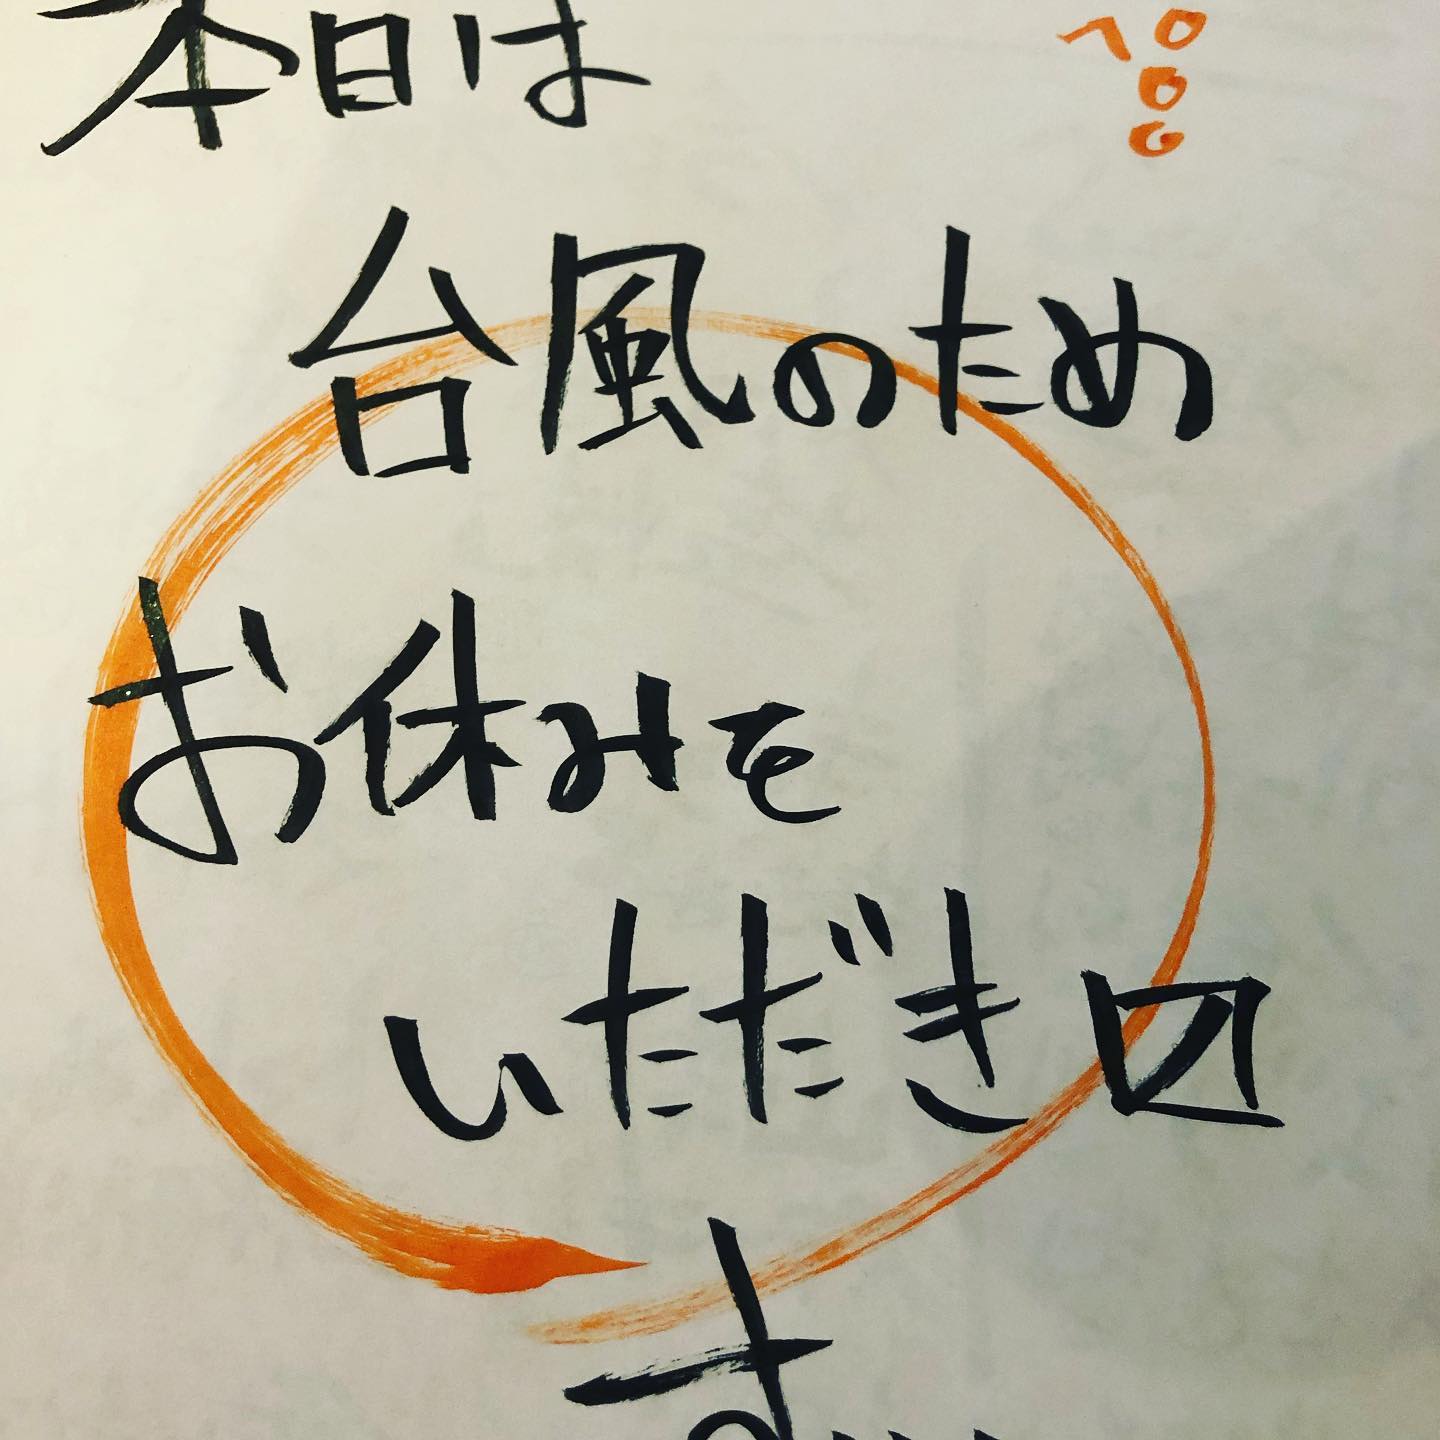 本日は
台風のため
お休みを
いただき〼
す....